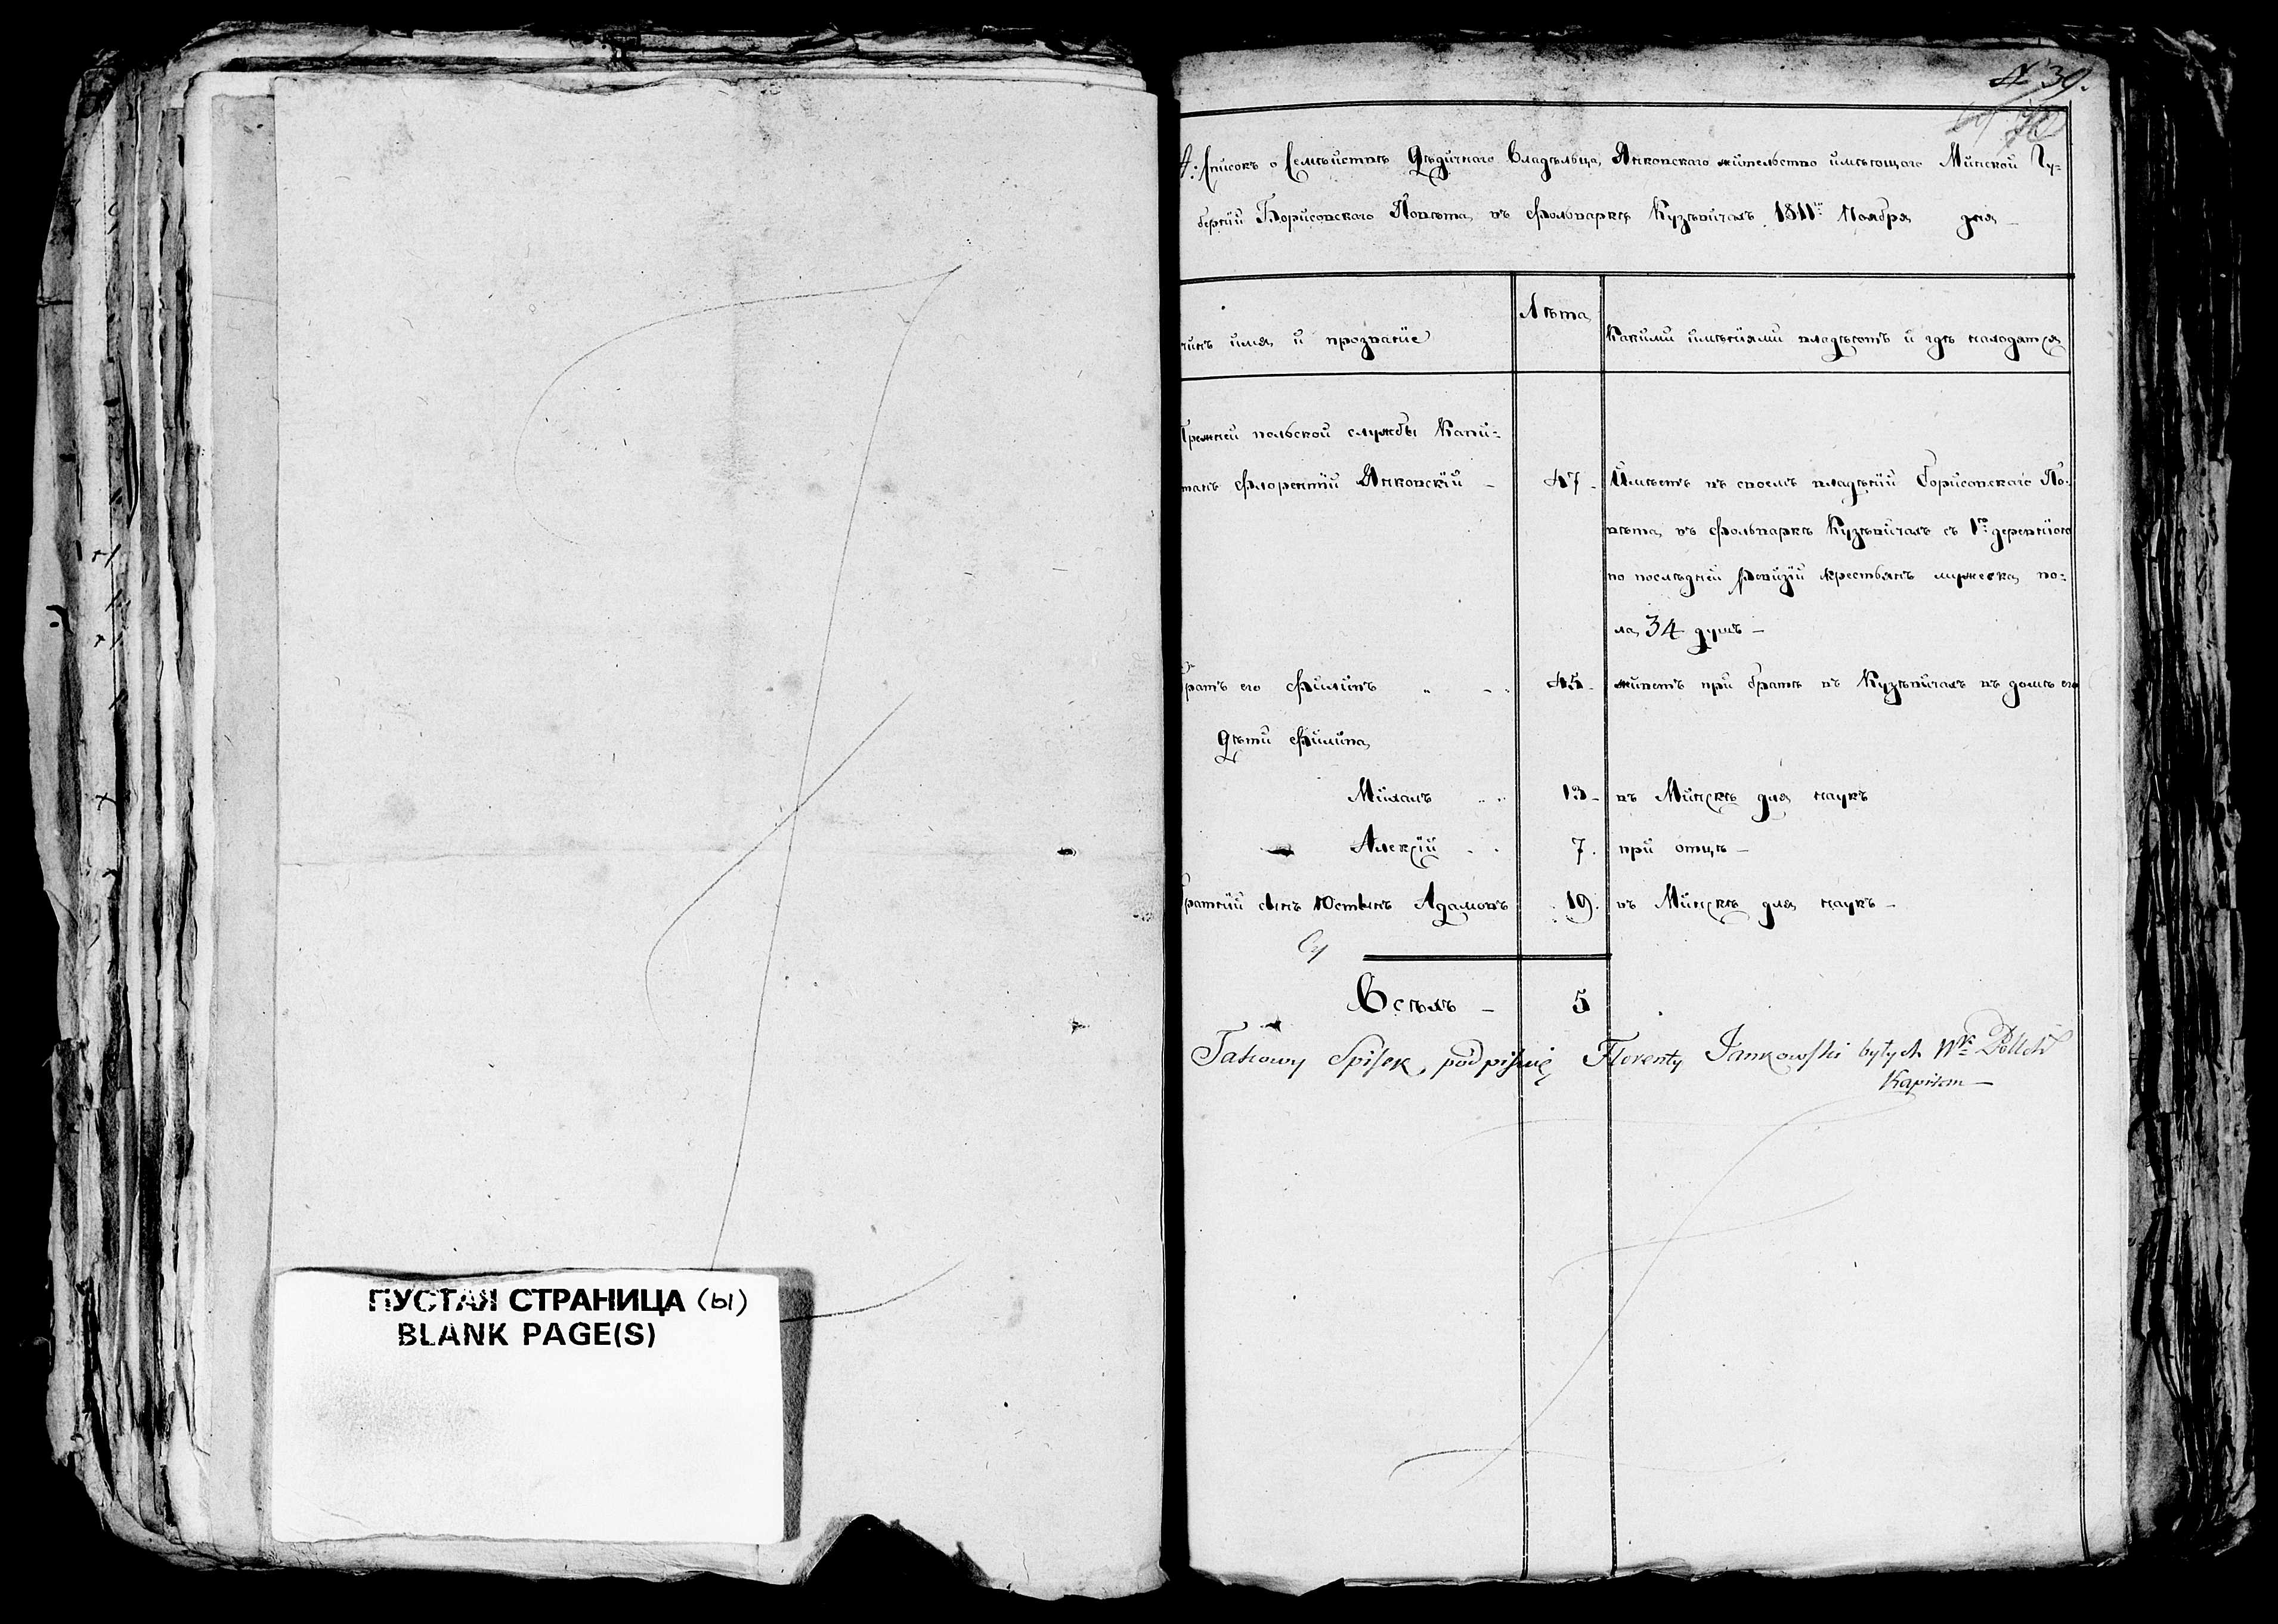 ПУСТАЯ СТРАНИЦА (ы)
BLANK PAGE(S)
№ 39.
Списокъ о Семѣйствѣ Дѣдичнаго Владѣльца Янковскаго жительство имѣющаго Минской Гу=
берніи Борисовскаго Повѣта въ фольваркѣ Кузѣвичахъ 1811го Ноября дня —
чинъ имя и прозваніе
Лѣта
Какими имѣніями владѣетъ и гдѣ находятся
Прежней польской службы Капи=
танъ Флорентій Янковскій — 47. Имѣетъ въ своемъ владѣніи Борисовскаго По=
вѣта въ фольваркѣ Кузѣвичахъ съ 1ю деревнѣю
по послѣдней Ревизіи крестьянъ мужеска по=
ла 34 душъ —
братъ его Филипъ 45. живетъ при братѣ въ Кузѣвичахъ въ домѣ его
Дѣти Филипа
Михалъ 13 — въ Минскѣ для наукъ
Алексій 7. при отцѣ —
братній сынъ Юстынъ Адамовъ 19. въ Минскѣ для наукъ —
Всѣхъ — 5
Takowy Spisek, podpisuię Florenty Jankowski byłych Wk Polskich
Kapitan —